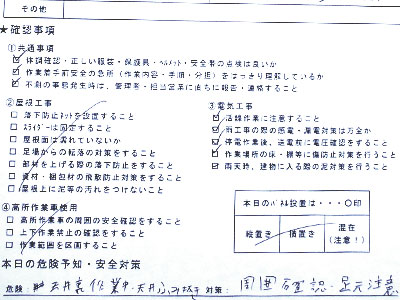 その他
★確認事項
①共通事項
☑ 体調確認・正しい服装・保護具・ヘルメット・安全帯の点検は良いか
☑ 作業着手前安全の急所（作業内容・手順・分担）をはっきり理解しているか
☑ 不測の事態発生時は、管理者・担当営業に直ちに報告・連絡すること
②屋根工事
□ 落下防止ネットを設置すること
□ スライダーは固定すること
□ 屋根面は濡れていないか
□ 足場からの転落の対策をすること
□ 部材を上げる際の落下防止をすること
□ 資材・梱包材の飛散防止対策をすること
□ 屋根上に泥等の汚れをつけないこと
③電気工事
☑ 活線作業に注意すること
☑ 雨工事の際の感電・漏電対策は万全か
☑ 停電作業後、送電前に電圧確認をすること
☑ 作業場所の床・棚等に傷防止対策を行うこと
☑ 雨天時、建物に入る際の泥対策を行うこと
④高所作業車使用
□ 高所作業車の周囲の安全確認をすること
□ 上下作業禁止の確認をすること
□ 作業範囲を区画すること
本日のパネル設置は・・・○印
縦置き 横置き 混在（注意！）
本日の危険予知・安全対策
危険： 天井裏作業中・天井ふみ抜き 対策： 周囲確認・足元注意